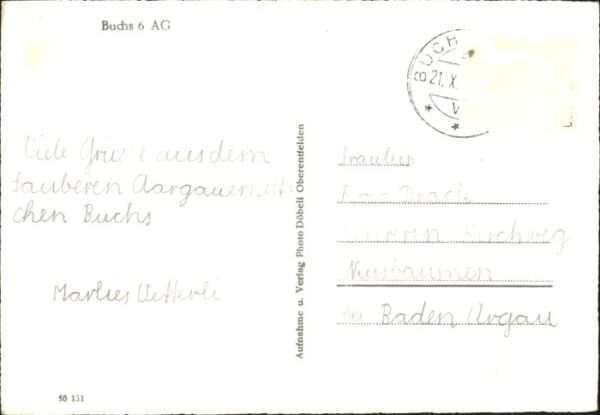 Buchs 6 AG
BUCH
21. X.
Viele Grüsse aus dem
sauberen Aargauerstät-
chen Buchs
Marlies Vetterli
Aufnahme u. Verlag Photo Döbeli Oberentfelden
Fräulein
Kirchweg
Nussbaumen
bei Baden Argau
50 131